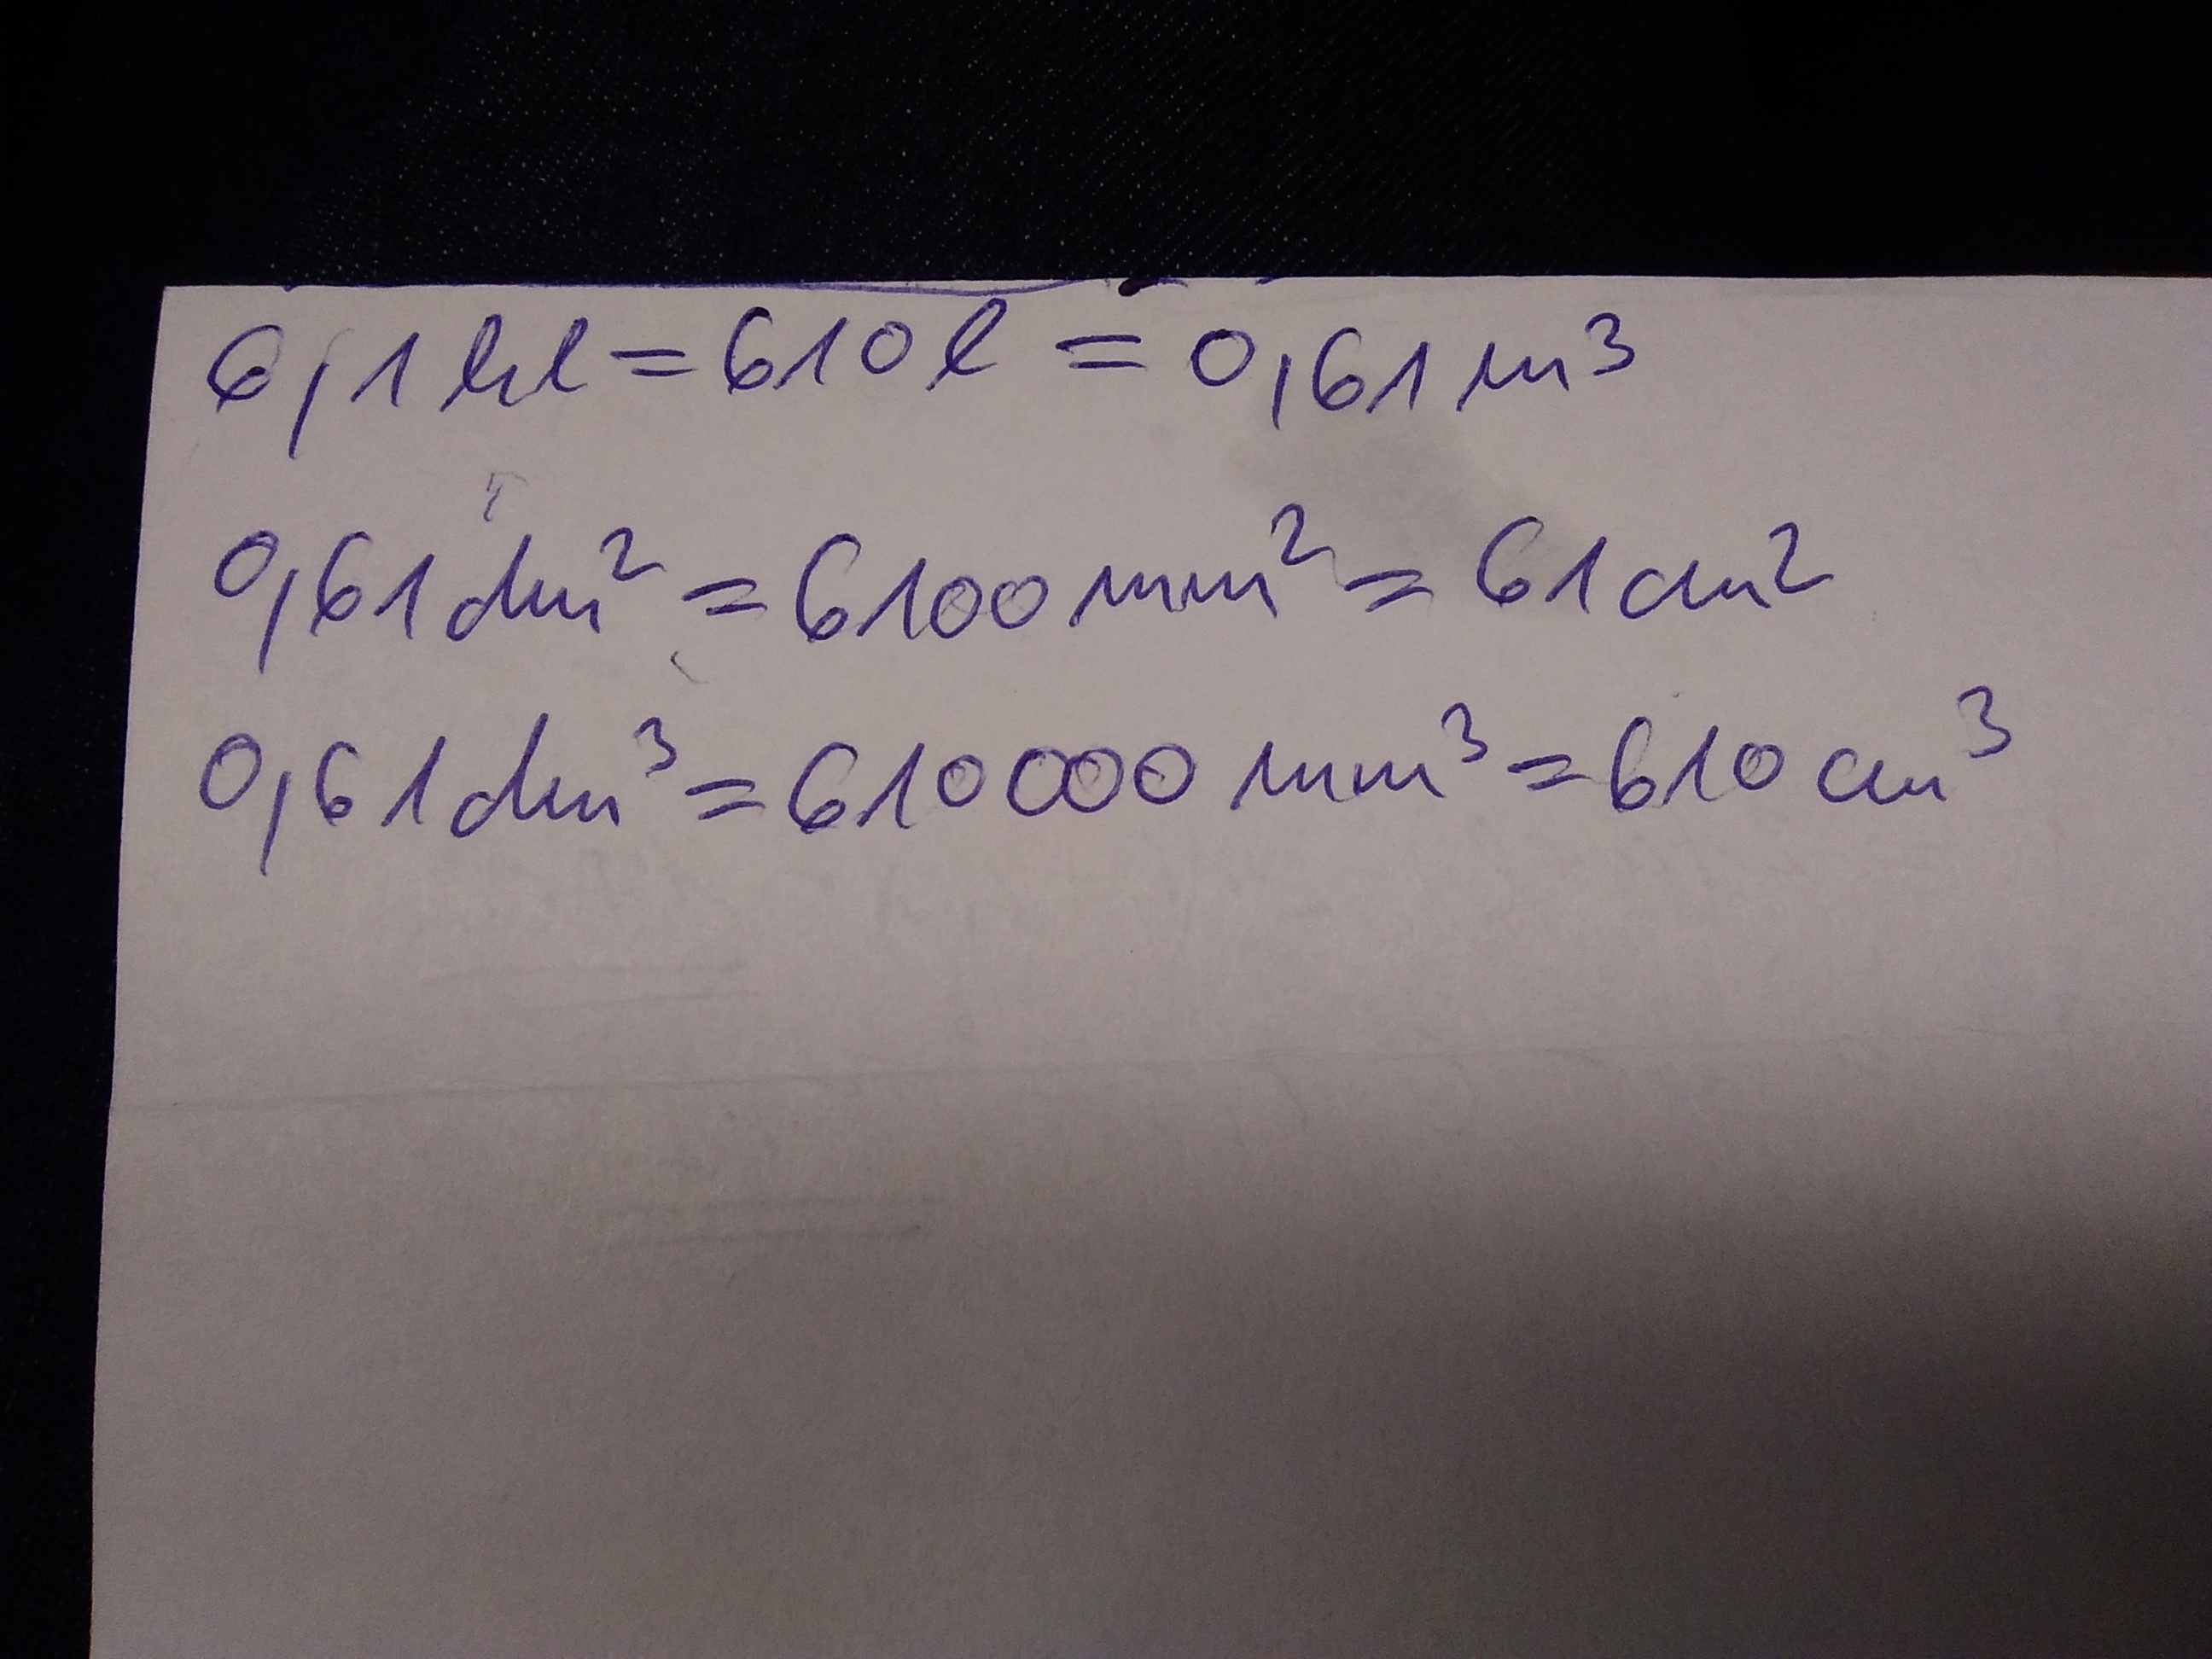 6,1 hl = 610 l = 0,61 m³
0,61 dm² = 6100 mm² = 61 cm²
0,61 dm³ = 610000 mm³ = 610 cm³